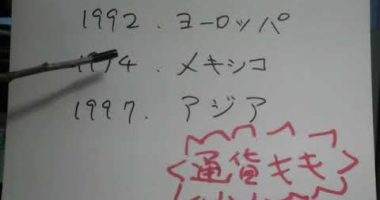 1992. ヨーロッパ
1994 メキシコ
1997. アジア
通貨キキ